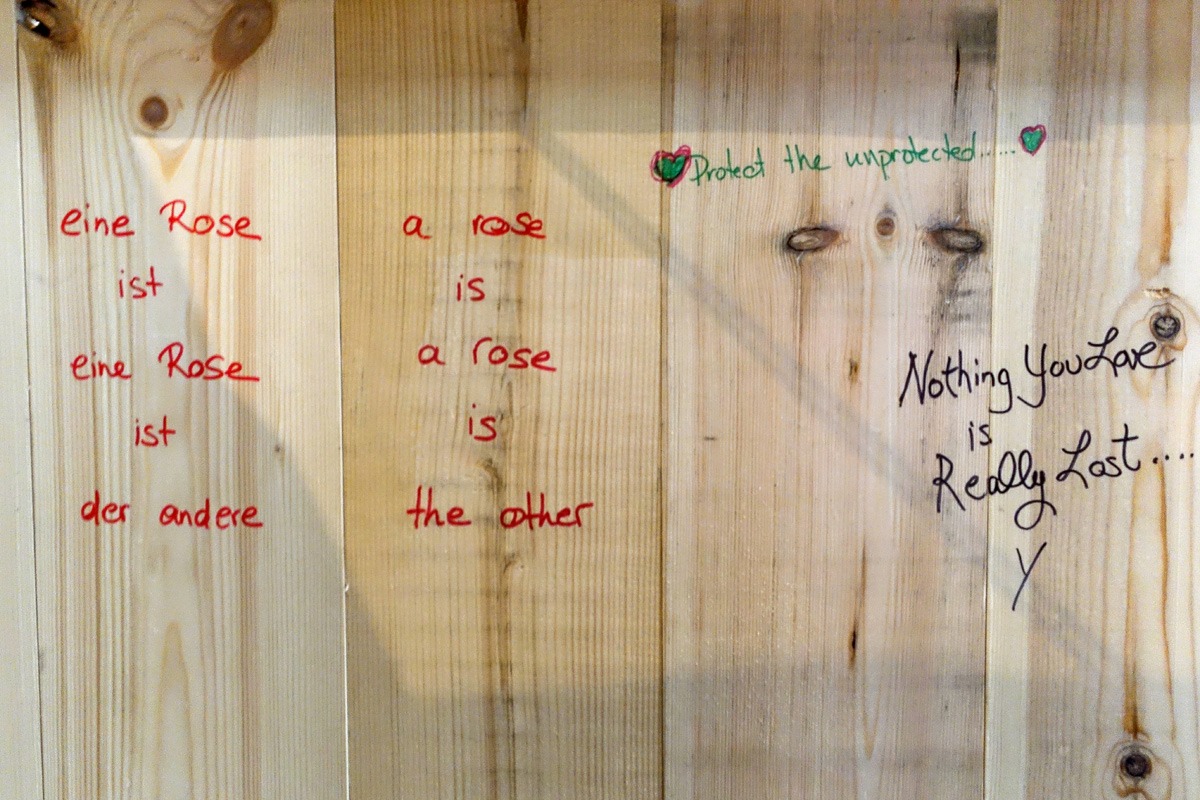 eine Rose
ist
eine Rose
ist
der andere
a rose
is
a rose
is
the other
Protect the unprotected......
Nothing You Love
is
Really Lost....
y